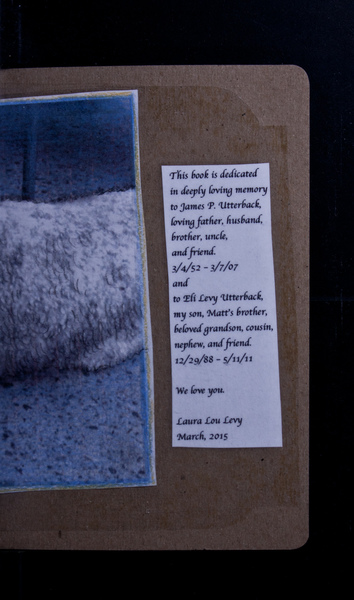 This book is dedicated
in deeply loving memory
to James P. Utterback,
loving father, husband,
brother, uncle,
and friend.
3/4/52 – 3/7/07
and
to Eli Levy Utterback,
my son, Matt's brother,
beloved grandson, cousin,
nephew, and friend.
12/29/88 – 5/11/11
We love you.
Laura Lou Levy
March, 2015